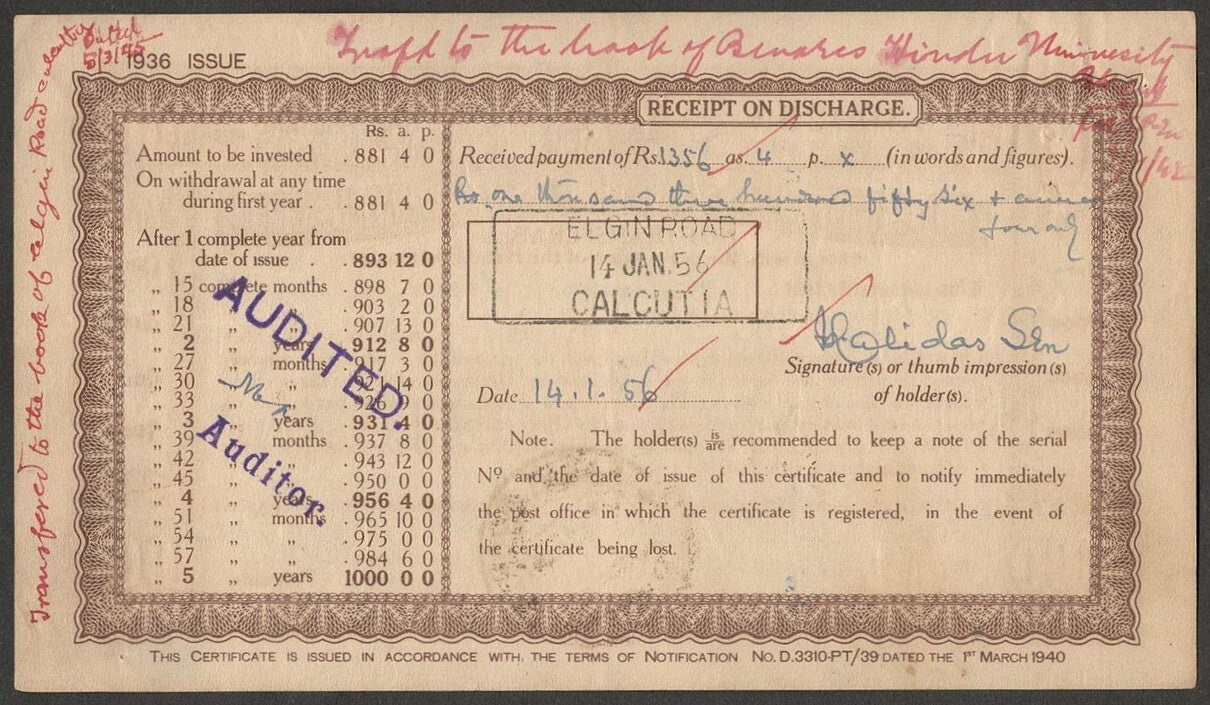 Transfd to the book of Benares Hindu Univesity
5/3/45
1936 ISSUE
Transfered to the book of elgin Road calcutta
RECEIPT ON DISCHARGE.
Rs. a. p.
Amount to be invested . 881 4 0
On withdrawal at any time
during first year . . 881 4 0
After 1 complete year from
date of issue . . 893 12 0
„ 15 complete months . 898 7 0
„ 18 „ „ . 903 2 0
„ 21 „ „ . 907 13 0
„ 2 „ years . 912 8 0
„ 27 „ months . 917 3 0
„ 30 „ „ . 921 14 0
„ 33 „ „ . 926 9 0
„ 3 „ years . 931 4 0
„ 39 „ months . 937 8 0
„ 42 „ „ . 943 12 0
„ 45 „ „ . 950 0 0
„ 4 „ years . 956 4 0
„ 51 „ months . 965 10 0
„ 54 „ „ . 975 0 0
„ 57 „ „ . 984 6 0
„ 5 „ years 1000 0 0
AUDITED.
Auditor.
Received payment of Rs. 1356 as. 4 p. x (in words and figures).
Rs one thousand three hundred fifty six + annas
four only
ELGIN ROAD
14 JAN. 56
CALCUTTA
Kalidas Sen
Signature(s) or thumb impression(s)
of holder(s).
Date 14. 1. 56
Note. The holder(s) is/are recommended to keep a note of the serial
Nº and the date of issue of this certificate and to notify immediately
the post office in which the certificate is registered, in the event of
the certificate being lost.
THIS CERTIFICATE IS ISSUED IN ACCORDANCE WITH THE TERMS OF NOTIFICATION NO. D.3310-PT/39 DATED THE 1ST MARCH 1940